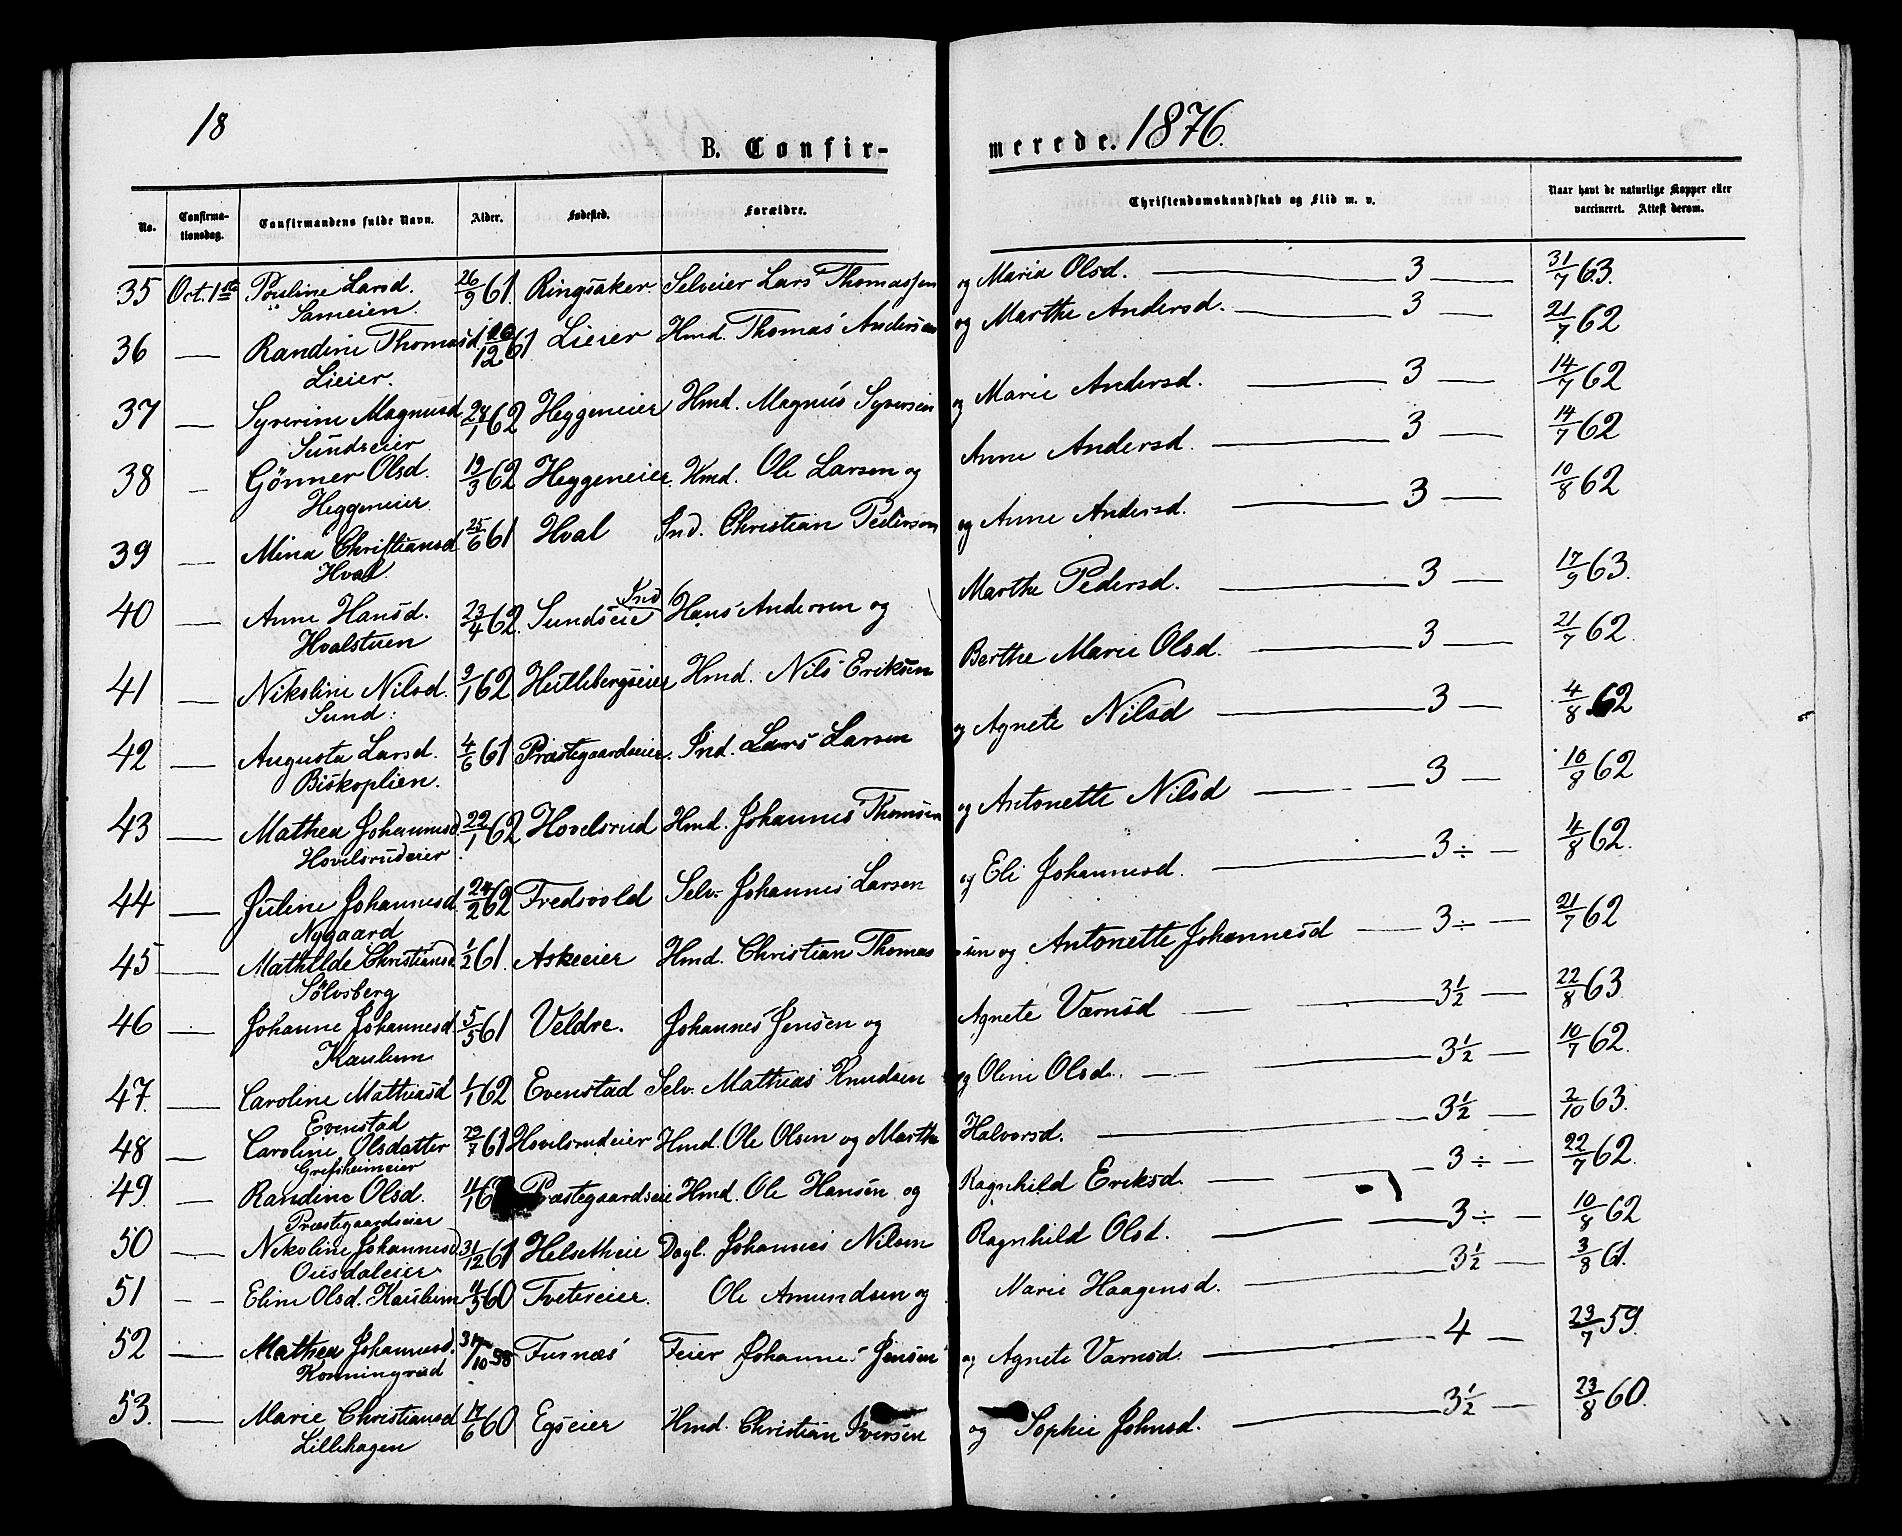 18
B. Confir-
merede. 1876.
No.
Confirma-
tionsdag.
Confirmandens fulde Navn.
Alder.
Fødested.
Forældre.
Christendomskundskab og Flid m. v.
Naar havt de naturlige Kopper eller
vaccineret. Attest derom.
35 Oct. 1ste Pouline Larsd. 26/9 61. Ringsaker. Selveier Lars Thomassen og Maria Olsd. — 3 — 31/7 63.
Sameien.
36 — Randine Thomasd. 12 61 Lieier Hmd. Thomas Andersen og Marthe Andersd. — 3 — 21/7 62
Lieier.
37 — Syverine Magnusd. 28/1 62 Heggeneier Hmd. Magnus Syversen og Marie Andersd. — 3 — 14/7 62
Sundseier
38 — Gönner Olsd. 19/3 62 Heggeneier. Hmd. Ole Larsen og Anne Andersd. — 3 — 14/7 62
Heggeneier
39 — Mina Christiansd. 25/6 61 Hval Ind. Christian Pedersen og Anne Andersd. — 3 — 10/8 62
Hval.
40 — Anne Hansd. 23/4 62. Sundseie Ind Hans Andersen og Marthe Pedersd. — 3 — 17/9 63.
Hvalstuen
41 — Nikoline Nilsd. 9/1 62 Hullebergseier Hmd. Nils Eriksen Berthe Marie Olsd. — 3 — 21/7 62.
Sund.
42 — Augusta Larsd. 4/6 61 Præstegaardseier. Ind. Lars Larsen og Agnete Nilsd — 3 — 4/8 62
Biskoplien.
43 — Mathea Johannesd. 22/1 62 Hovelsrud Hmd. Johannes Thomsen og Antonette Nilsd — 3 — 10/8 62
Hovelsrudeier
44 — Juline Johannesd. 24/2 62 Fredsvold Selv. Johannes Larsen og Eli Johannesd. — 3÷ — 4/8 62.
Nygaard
45 — Mathilde Christiansd. 1/2 61. Askeeier Hmd. Christian Thomassen og Antonette Johannesd — 3÷ — 21/7 62
Sölvsberg
46 — Johanne Johannesd 5/5 61 Veldre. Johannes Jensen og Agnete Værnsd — 3½ — 22/8 63
Kaulum
47. — Caroline Mathiasd 1/1 62 Evenstad Selv. Mathias Knudsen og Oline Olsd. — 3½ — 10/7 62.
Evenstad
48 — Caroline Olsdatter 29/7 61 Hovilsrudeier Hmd. Ole Olsen og Marthe Halvorsd. — 3½ — 2/10 63.
Grefsheimeier
49. — Randine Olsd. Præstegaardseie Hmd. Ole Hansen og Ragnhild Eriksd. — 3÷ — 22/7 62.
Præstegaardseier
50 — Nikoline Johannesd. 31/12 61 Helsetheie Dagl. Johannes Nilsen Ragnhild Olsd. — 3÷ — 10/8 62
Ousdaleier
51 — Eline Olsd. Kaulum 4/5 60 Tvetereier. Ole Amundsen og Marie Haagensd. — 3½ — 3/8 61.
52 — Mathea Johannesd. 10 58 Furnæs Feier Johannes Jensen og Agnete Værnsd. — 4 — 23/7 59.
Konningrud
53. — Marie Christiansd 17/6 60 Egseier Hmd. Christian Iversen og Sophie Johnsd. — 3½ — 23/8 60.
Lillehagen